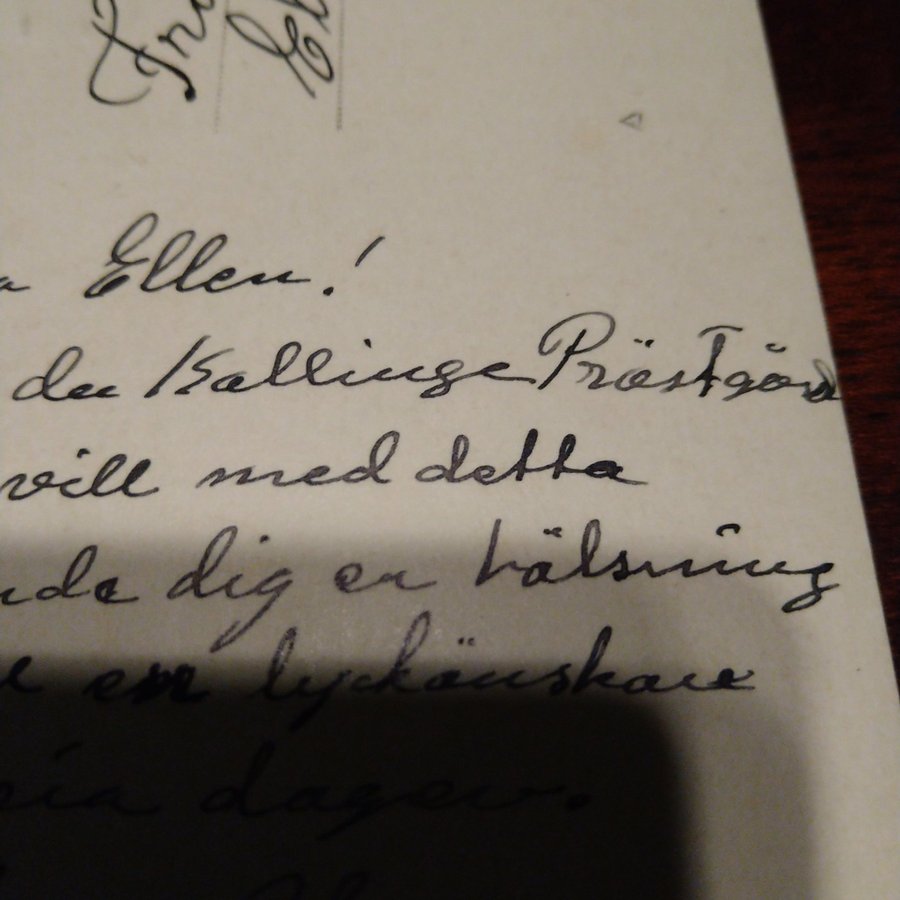 Ellen!
du Kallinge Prästgård
vill med detta
nda dig en hälsning
en lyckönskan
dagen.